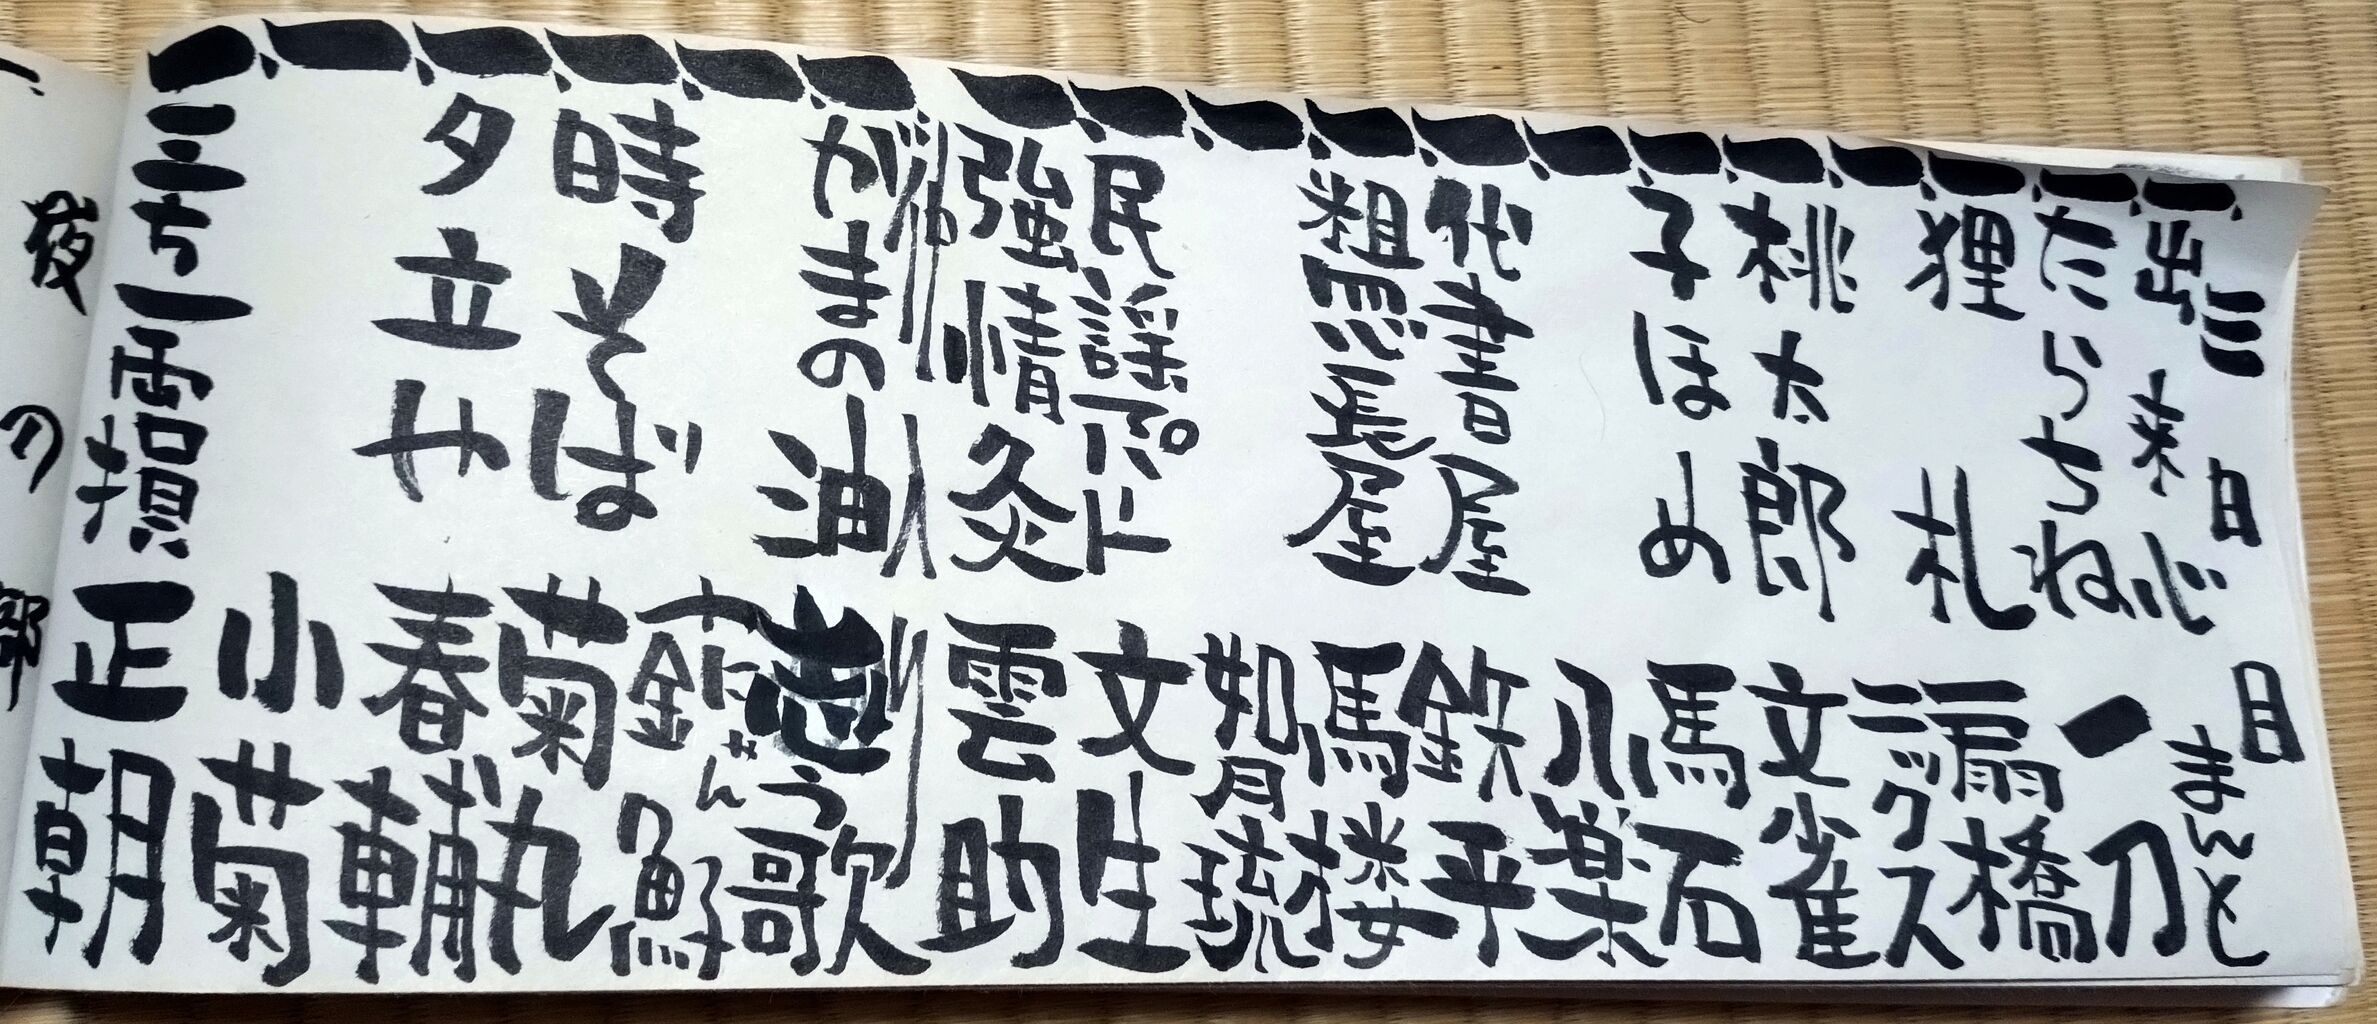 三日目
出来心 まんと
たらちね 一刀
狸札 扇橋
ニックス
桃太郎 文雀
子ほめ 馬石
八楽
代書屋 鉄平
粗忽長屋 馬楼
如月琉
民謡 文生
強情灸 雲助
がまの油 志う歌
にゃん子 金魚
時そば 菊丸
夕立や 春輔
小菊
三方一両損 正朝
夜の部